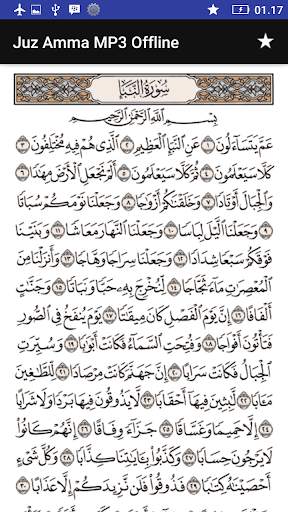 01.17
Juz Amma MP3 Offline
سُورَةُ النَّبَإِ
بِسْمِ ٱللَّهِ ٱلرَّحْمَٰنِ ٱلرَّحِيمِ
عَمَّ يَتَسَآءَلُونَ ١ عَنِ ٱلنَّبَإِ ٱلْعَظِيمِ ٢ ٱلَّذِى هُمْ فِيهِ مُخْتَلِفُونَ ٣
كَلَّا سَيَعْلَمُونَ ٤ ثُمَّ كَلَّا سَيَعْلَمُونَ ٥ أَلَمْ نَجْعَلِ ٱلْأَرْضَ مِهَٰدًا ٦
وَٱلْجِبَالَ أَوْتَادًا ٧ وَخَلَقْنَٰكُمْ أَزْوَٰجًا ٨ وَجَعَلْنَا نَوْمَكُمْ سُبَاتًا
٩ وَجَعَلْنَا ٱلَّيْلَ لِبَاسًا ١٠ وَجَعَلْنَا ٱلنَّهَارَ مَعَاشًا ١١ وَبَنَيْنَا
فَوْقَكُمْ سَبْعًا شِدَادًا ١٢ وَجَعَلْنَا سِرَاجًا وَهَّاجًا ١٣ وَأَنزَلْنَا مِنَ
ٱلْمُعْصِرَٰتِ مَآءً ثَجَّاجًا ١٤ لِّنُخْرِجَ بِهِۦ حَبًّا وَنَبَاتًا ١٥ وَجَنَّٰتٍ
أَلْفَافًا ١٦ إِنَّ يَوْمَ ٱلْفَصْلِ كَانَ مِيقَٰتًا ١٧ يَوْمَ يُنفَخُ فِى ٱلصُّورِ
فَتَأْتُونَ أَفْوَاجًا ١٨ وَفُتِحَتِ ٱلسَّمَآءُ فَكَانَتْ أَبْوَٰبًا ١٩ وَسُيِّرَتِ
ٱلْجِبَالُ فَكَانَتْ سَرَابًا ٢٠ إِنَّ جَهَنَّمَ كَانَتْ مِرْصَادًا ٢١ لِّلطَّٰغِينَ
مَـَٔابًا ٢٢ لَّٰبِثِينَ فِيهَآ أَحْقَابًا ٢٣ لَّا يَذُوقُونَ فِيهَا بَرْدًا وَلَا شَرَابًا
٢٤ إِلَّا حَمِيمًا وَغَسَّاقًا ٢٥ جَزَآءً وِفَاقًا ٢٦ إِنَّهُمْ كَانُوا۟
لَا يَرْجُونَ حِسَابًا ٢٧ وَكَذَّبُوا۟ بِـَٔايَٰتِنَا كِذَّابًا ٢٨ وَكُلَّ شَىْءٍ
أَحْصَيْنَٰهُ كِتَٰبًا ٢٩ فَذُوقُوا۟ فَلَن نَّزِيدَكُمْ إِلَّا عَذَابًا ٣٠